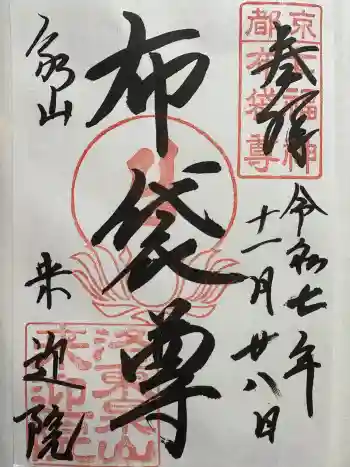 奉拝
京都七福神
布袋尊
令和七年
十一月廿八日
布袋尊
泉山
来迎院
洛東泉山
来迎院